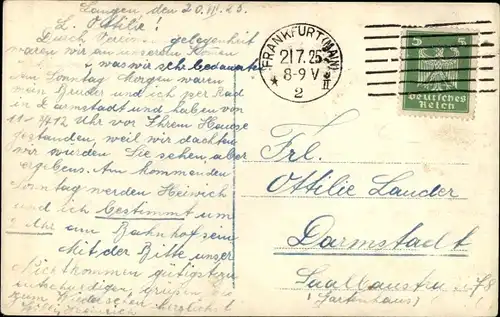 Langen den 20. VII. 25.
L. Ottilie!
Durch Vereins gelegenheit
waren wir an unserem Kommen
was wir sehr bedauerten
den Sonntag Morgen waren
mein Bruder und ich per Rad
in Darmstadt und haben von
11 - 1/2 12 Uhr vor Ihrem Hause
gestanden, weil wir dachten
wir würden Sie sehen, aber
vergebens. Am kommenden
Sonntag werden Heinrich
und ich bestimmt um
2 Uhr am Bahnhof sein
Mit der Bitte unser
Nichtkommen gütigst zu
entschuldigen, grüßen Sie
zum Wiedersehen herzlichst
Heinrich
FRANKFURT (MAIN)
21 7. 25
8-9 V
* 2 II
5 5
Deutsches
Reich
Frl.
Ottilie Lauder
Darmstadt
Saalbaustr. 78
(Gartenhaus)